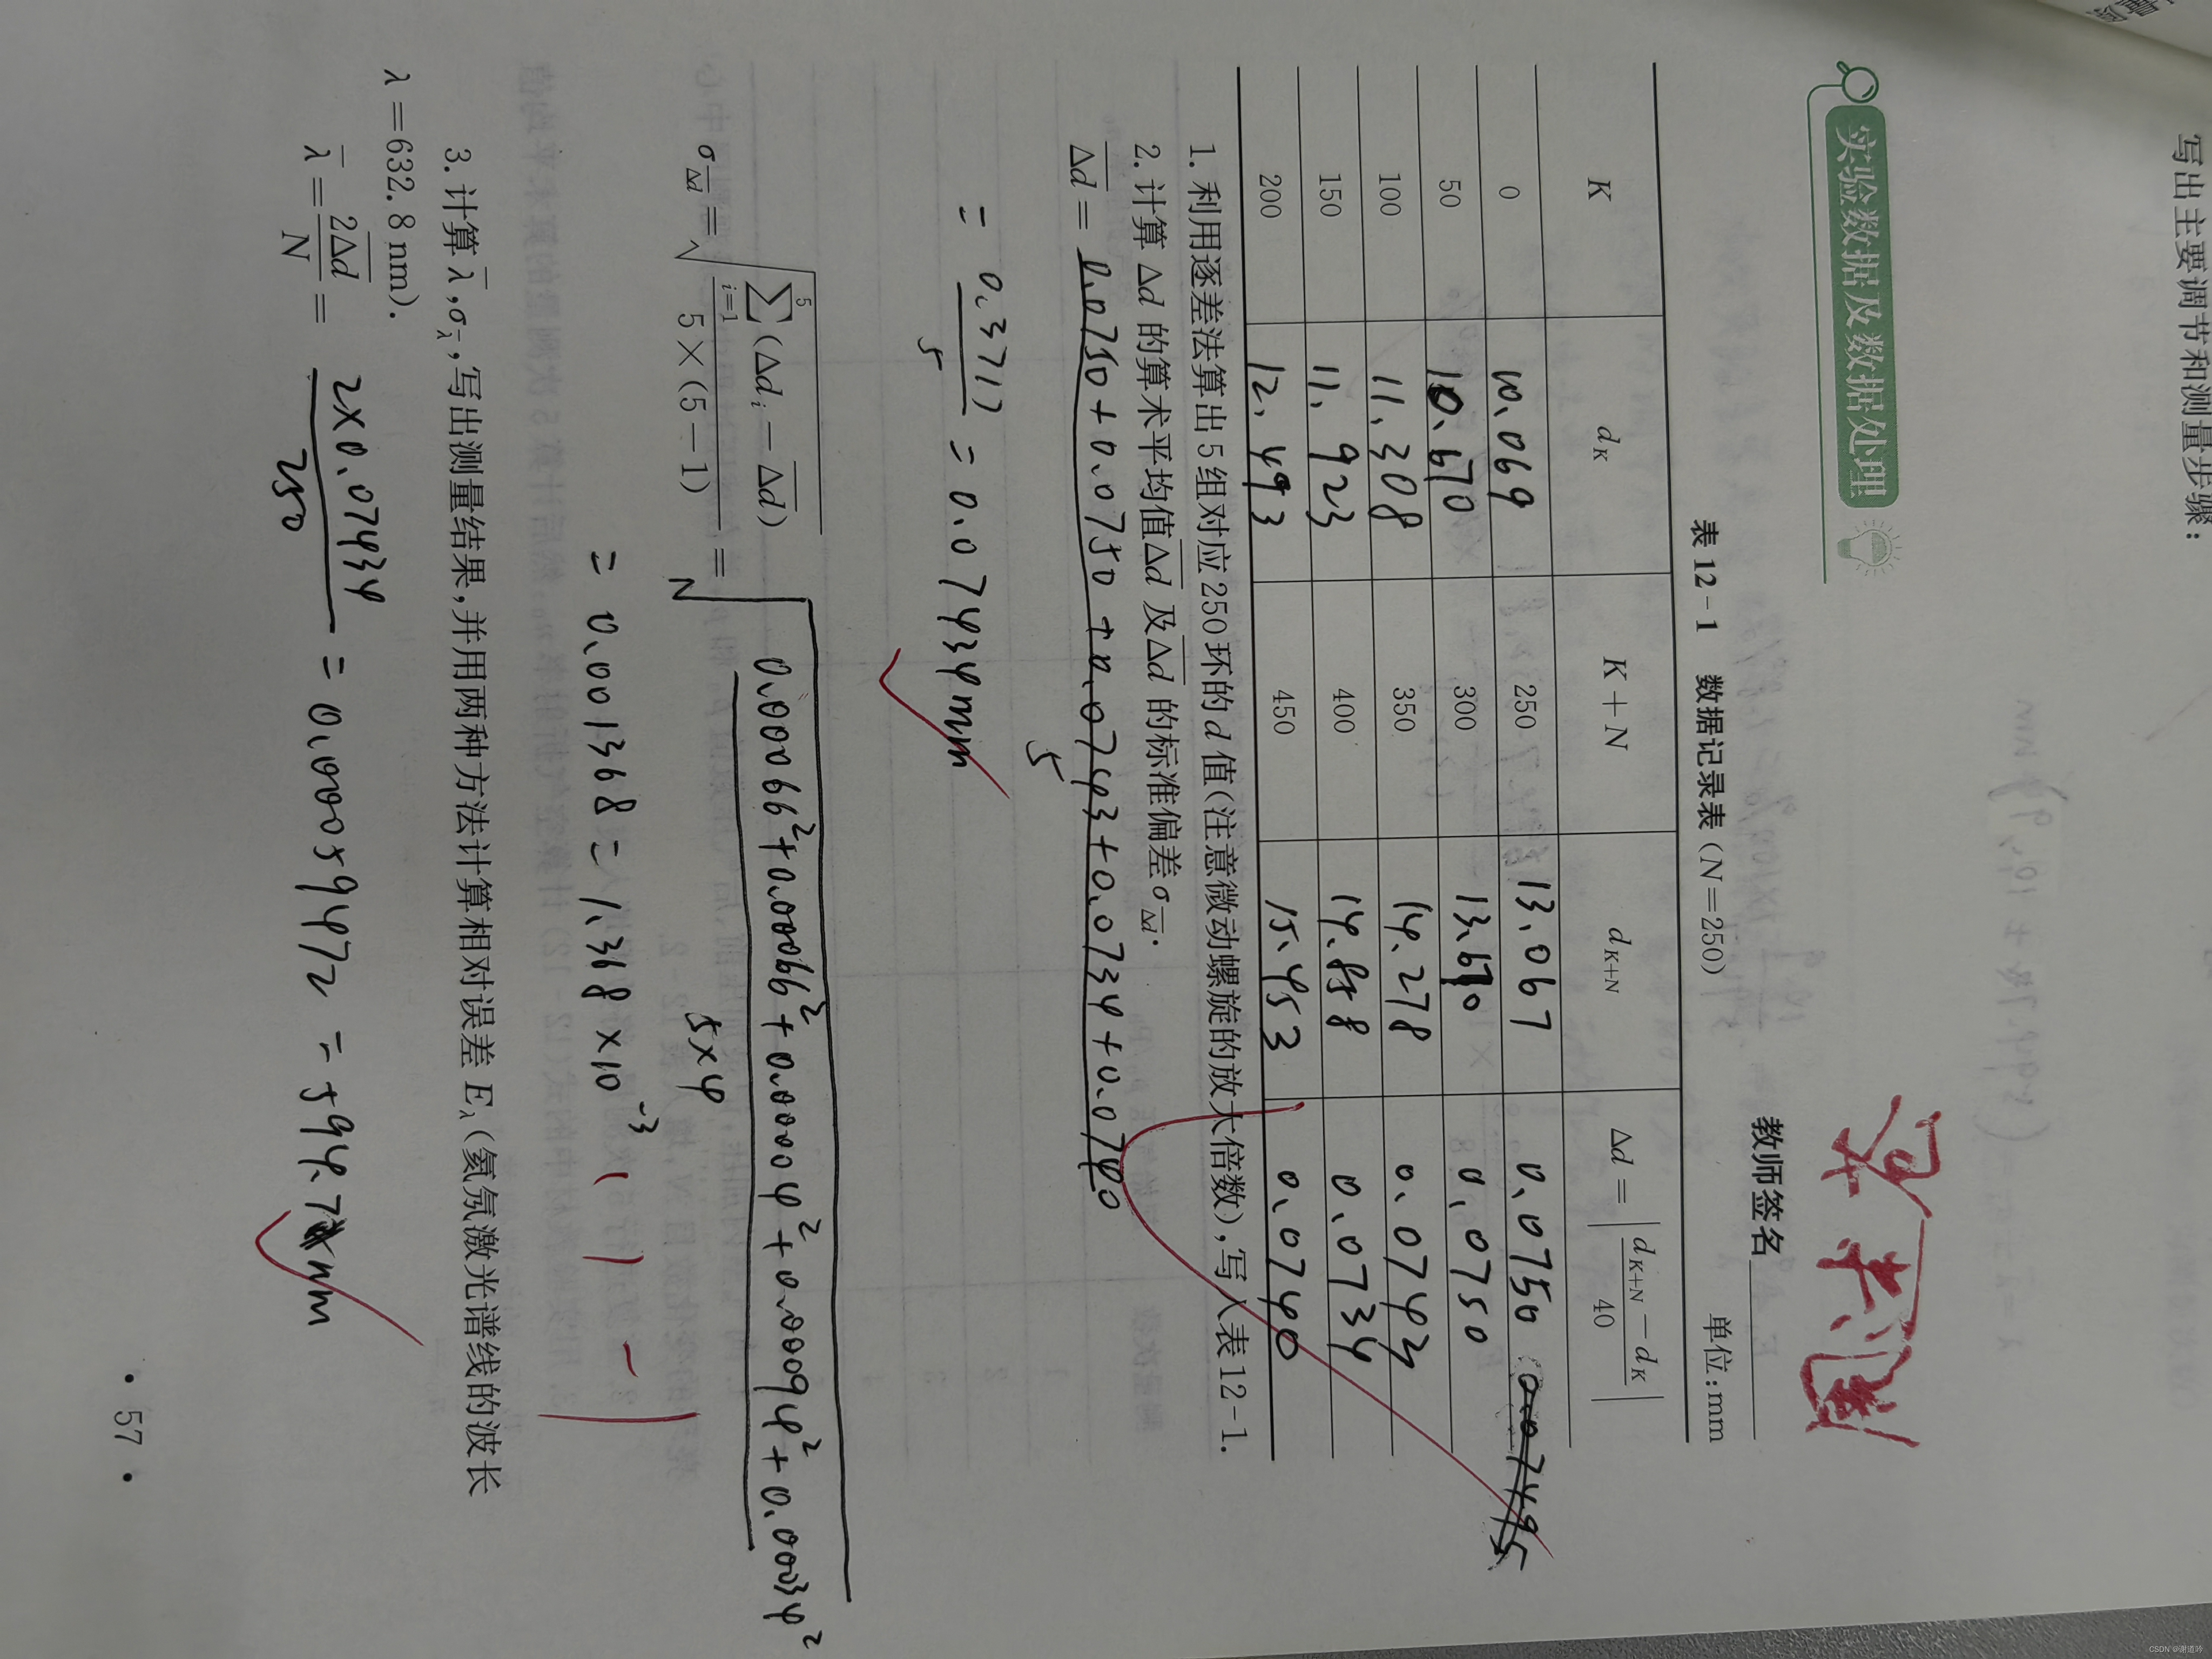 写出主要调节和测量步骤：
实验数据及数据处理
教师签名
表 12-1 数据记录表（N=250）
单位：mm
K d_K K+N d_{K+N} Δd = |(d_{K+N} − d_K)/40|
0 10.069 250 13.067 0.0750
50 10.670 300 13.670 0.0750
100 11.308 350 14.278 0.0743
150 11.923 400 14.858 0.0734
200 12.493 450 15.453 0.0740
1. 利用逐差法算出 5 组对应 250 环的 d 值（注意微动螺旋的放大倍数），写入表 12-1.
2. 计算 Δd 的算术平均值 \overline{Δd} 及 \overline{Δd} 的标准偏差 σ_{\overline{Δd}}.
\overline{Δd} = (0.0750+0.0750+0.0743+0.0734+0.0740)/5
= 0.3717/5 = 0.07434mm
σ_{\overline{Δd}} = √(∑_{i=1}^{5}(Δd_i − \overline{Δd})/(5×(5−1))) = √((0.00066²+0.00066²+0.00004²+0.00094²+0.00034²)/(5×4))
= 0.001368 = 1.368×10^{-3}
3. 计算 \overline{λ}，σ_{\overline{λ}}，写出测量结果，并用两种方法计算相对误差 E_λ（氦氖激光谱线的波长
λ=632.8 nm）.
\overline{λ} = 2\overline{Δd}/N = (2×0.07434)/250 = 0.00059472 = 594.7nm
· 57 ·
CSDN @谢道吟